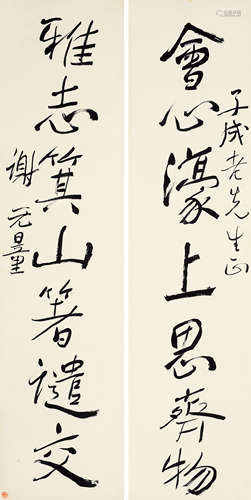 會心濠上思齊物
子成老先生正
雅志箕山箸譴交
謝无量